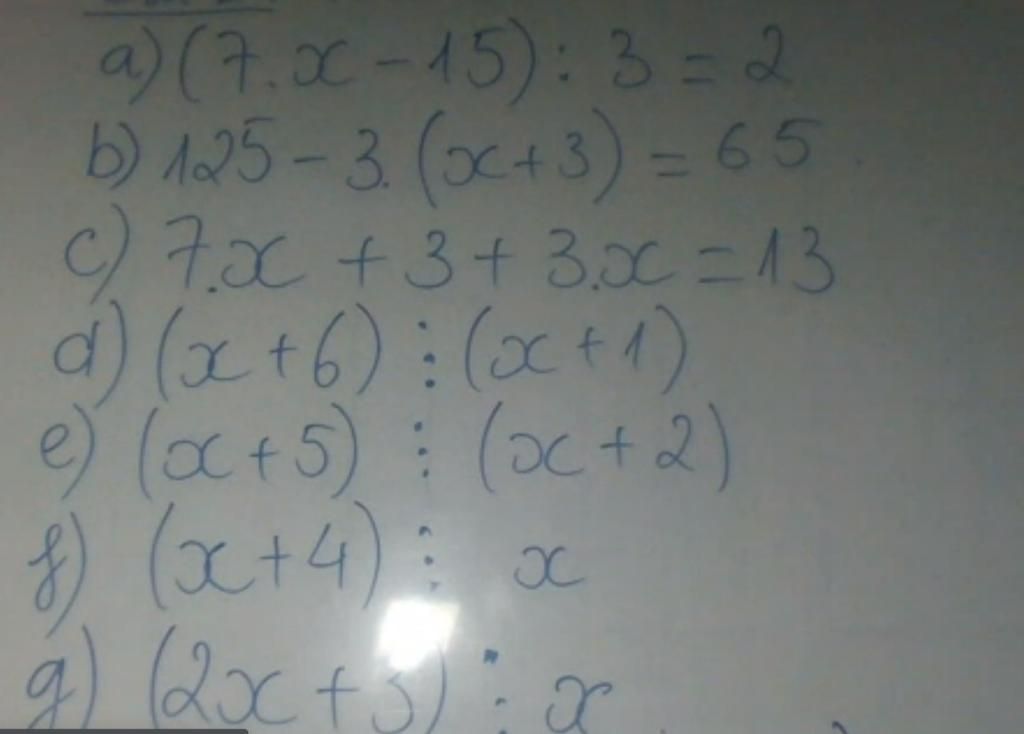 a) (7.x - 15) : 3 = 2
b) 125 - 3. (x+3) = 65
c) 7.x + 3 + 3.x = 13
d) (x+6) ⋮ (x+1)
e) (x+5) ⋮ (x+2)
f) (x+4) ⋮ x
g) (2x+3) ⋮ x